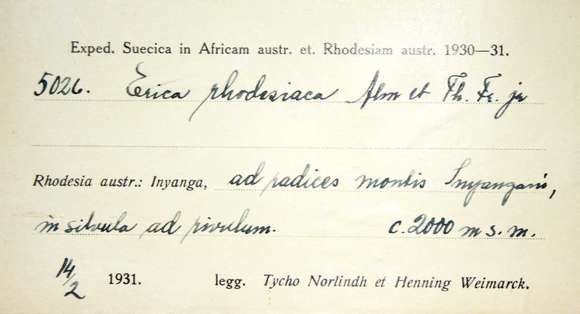 Exped. Suecica in Africam austr. et. Rhodesiam austr. 1930—31.
5026. Erica rhodesiaca Alm et Th. Fr. jr
Rhodesia austr.: Inyanga, ad radices montis Inyangani,
in silvula ad rivulum. c. 2000 m s. m.
14/2 1931. legg. Tycho Norlindh et Henning Weimarck.